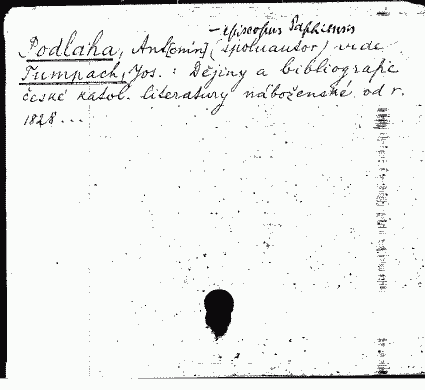 – episcopus Paphiensis
Podlaha, Ant[onín] (spoluautor) vide
Tumpach, Jos. : Dějiny a bibliografie
české katol. literatury náboženské od r.
1828 ...